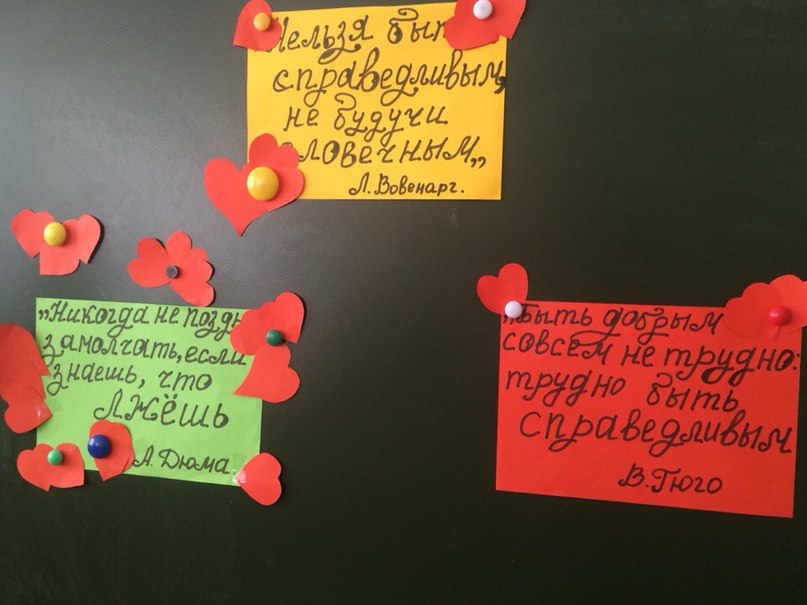 Нельзя быть
справедливым,
не будучи
человечным„
Л. Вовенарг.
„Никогда не поздно
замолчать, если
знаешь, что
лжёшь
А. Дюма.
„Быть добрым
совсем не трудно:
трудно быть
справедливым
В. Гюго